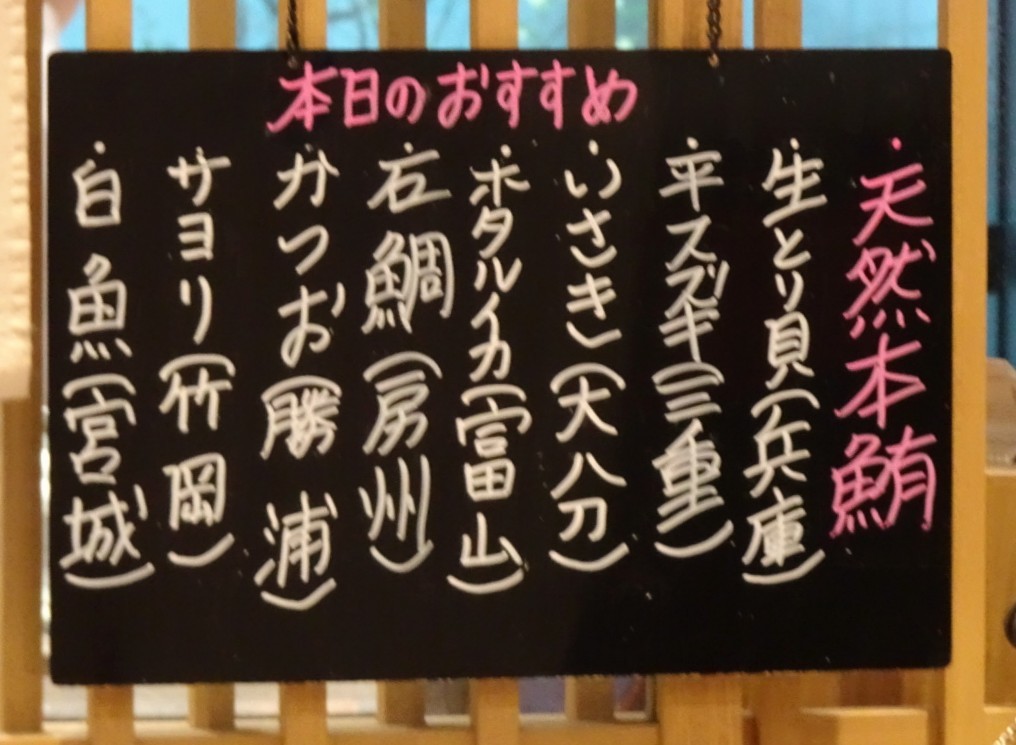 本日のおすすめ
・天然本鮪
・生とり貝(兵庫)
・平スズキ(三重)
・いさき(大分)
・ホタルイカ(富山)
・石鯛(房州)
・かつお(勝浦)
・サヨリ(竹岡)
・白魚(宮城)